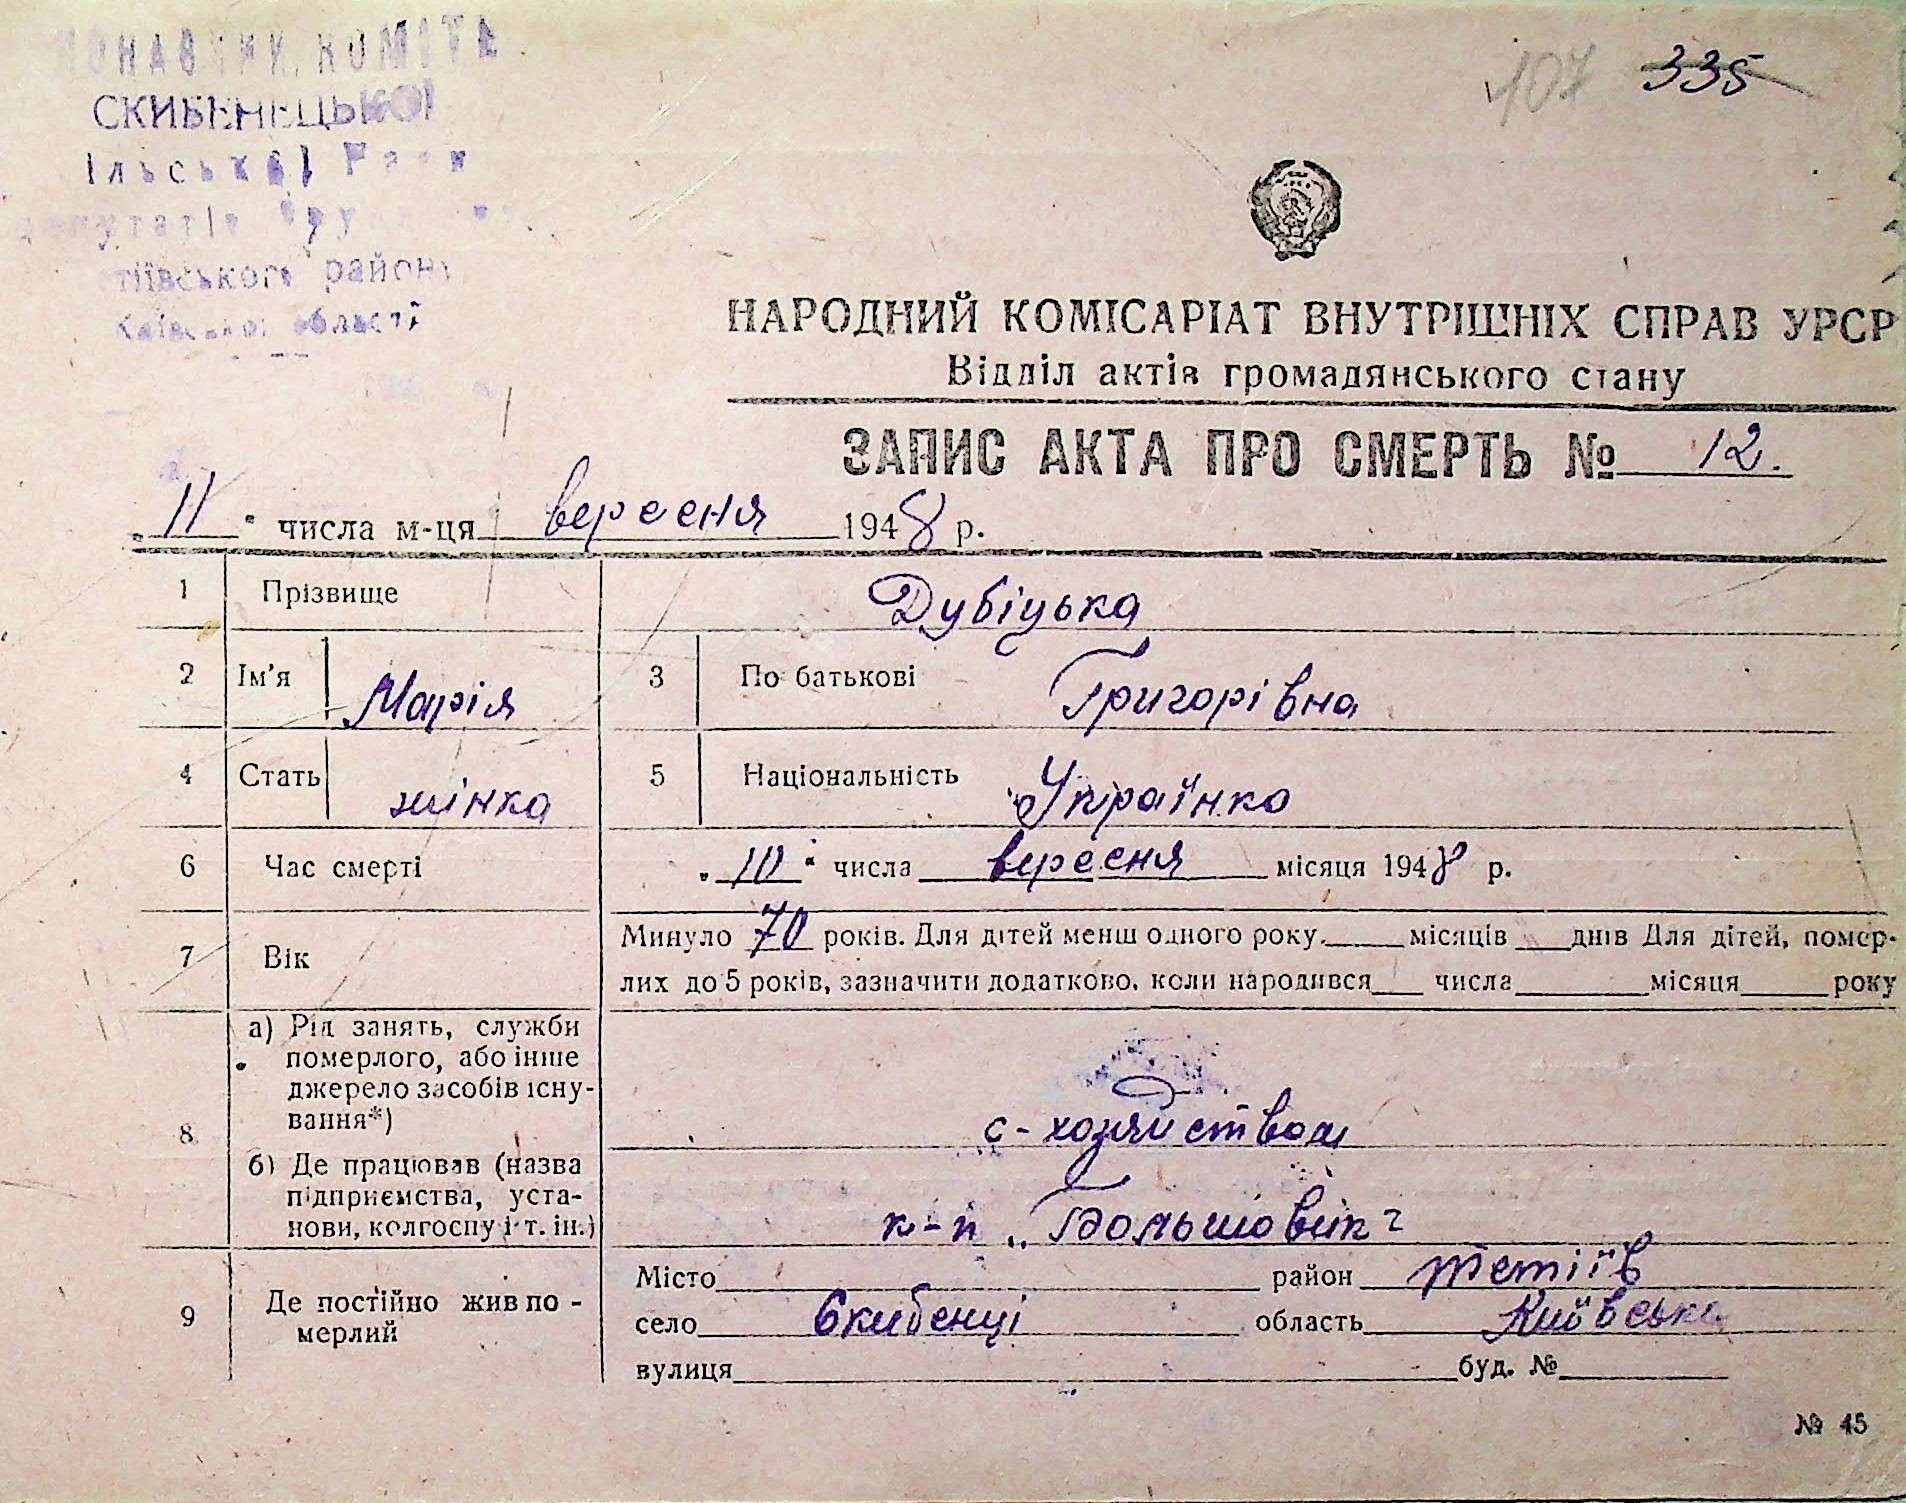 СКИБЕНЕЦЬКОЇ
107 335
району
Київської області
НАРОДНИЙ КОМІСАРІАТ ВНУТРІШНІХ СПРАВ УРСР
Відділ актів громадянського стану
ЗАПИС АКТА ПРО СМЕРТЬ № 12.
„11“ числа м-ця вересня 1948 р.
1 Прізвище Дубіцька
2 Ім'я Марія 3 По батькові Григорівна
4 Стать жінка 5 Національність Українка
6 Час смерті „10“ числа вересня місяця 1948 р.
7 Вік Минуло 70 років. Для дітей менш одного року. місяців днів Для дітей, помер-
лих до 5 років, зазначити додатково, коли народився числа місяця року
8 а) Рід занять, служби
померлого, або інше
джерело засобів існу-
вання*) с-хозяйством
б) Де працював (назва
підприємства, уста-
нови, колгоспу і т. ін.) к-п „Большовик"
9 Де постійно жив по-
мерлий
Місто район Тетіїв
село Скибенці область Київська
вулиця буд. №
№ 45